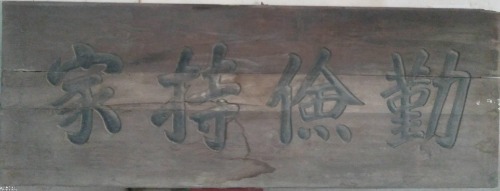 勤儉持家